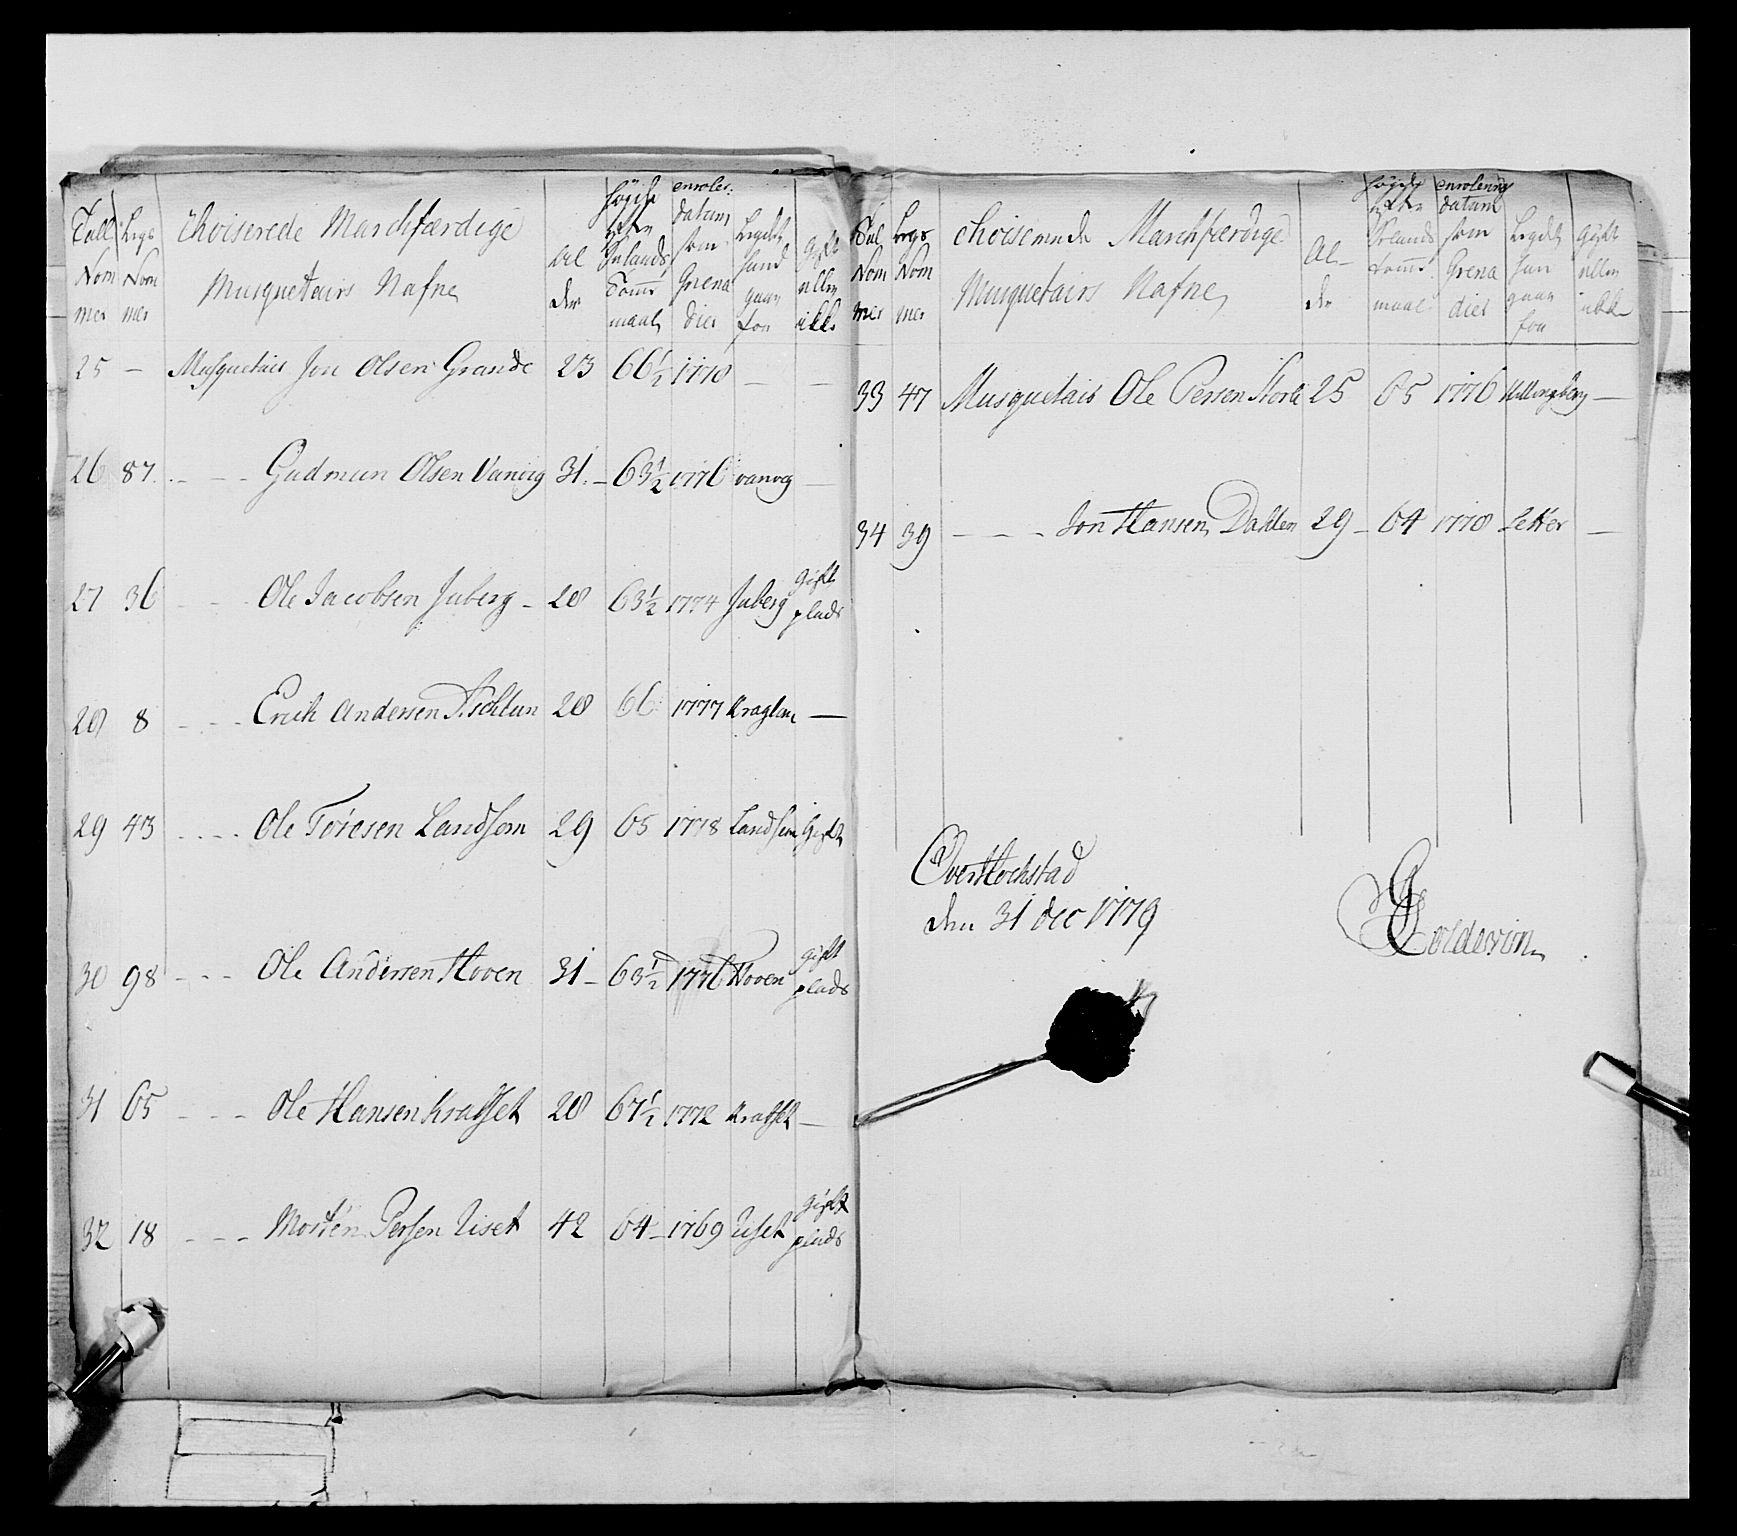 Tall Nom mer
Legs Nom mer
Choiserede Marchfærdige Musquetairs Nafne
Al der
Høyde efter Inlands Tomme maal
enroler: datum som Grena dier
Legdet hand gaar for
Gift eller ikke
25 — Musquetair Jon Olsen Grande 23 66½ 1778 — —
26 87 - - - Gudmun Olsen Vanvig 31 - 63½ 1776 vanvg —
27 36 - - - Ole Jacobsen Juberg - 28 63½ 1774 Juberg gift plads
28 8 - - - Erich Andersen 28 66 1777 Kraglun —
29 43 - - - Ole Toresen Landsem 29 65 1778 Landsem Gift
30 98 - - - Ole Andersen Hoven 31 - 63½ 1776 Hoven gift plads
31 65 - - - Ole Hansen Kradset 28 67½ 1772 Kradset —
32 18 - - - Morten Persen Liset 42 64 - 1769 Liset gift plads
Tal Nom mer
Legs Nom mer
choiserede Marchfærdige Musquetairs Nafne
Al- der
Høyde efter Inlands tomme maal
enrolering datum som Grena dier
Legdet han gaar for
gift eller ikke
33 47 Musquetair Ole Persen Storli 25 65 1776 —
34 39 - - - Jon Hansen Dahlen 29 - 64 1778 Letter —
Over Hochstad
den 31 dec 1779
Coldevin